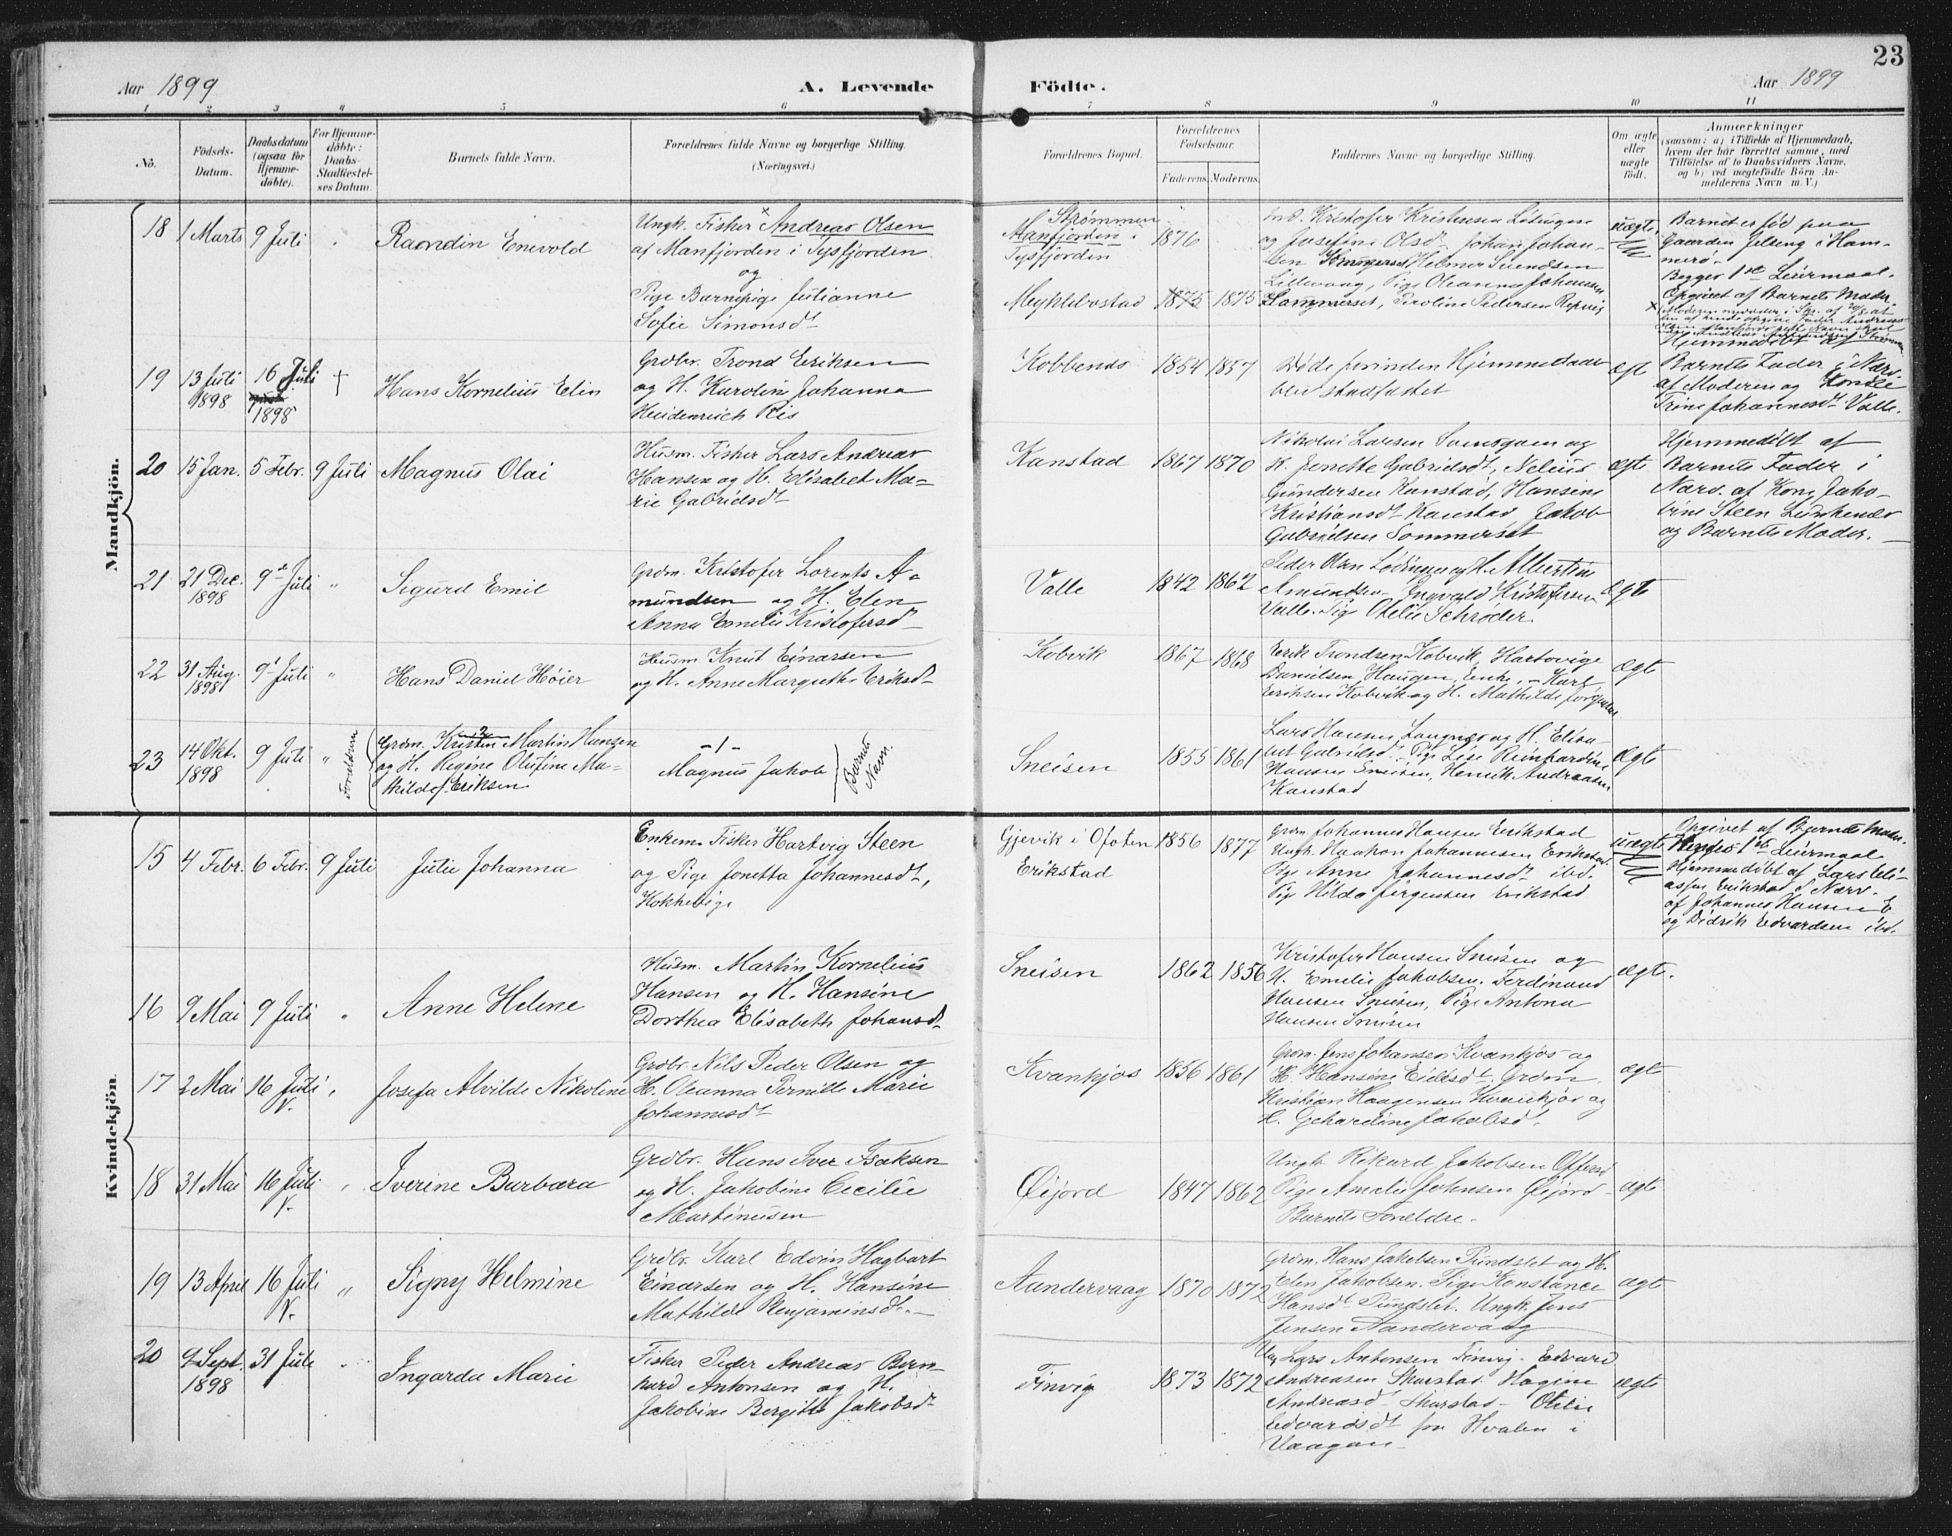 23
Aar 1899
A. Levende
Födte.
Aar 1899
1 2 3 4 5 6 7 8 9 10 11
No.
Födsels-
Datum.
Daabsdatum
(ogsaa for
Hjemme-
döbte).
For Hjemme-
döbte:
Daabs-
Stadfæstel-
ses Datum.
Barnets fulde Navn.
Forældrenes fulde Navne og borgerlige Stilling.
(Næringsvei.)
Forældrenes Bopæl.
Forældrenes
Födselsaar.
Faderens. Moderens.
Faddernes Navne og borgerlige Stilling.
Om ægte
eller
uægte
födt.
Anmærkninger
(saasom: a) i Tilfælde af Hjemmedaab,
hvem der har forrettet samme, med
Tilföielse af to Daabsvidners Navne,
og b) ved uægtefödte Börn An-
melderens Navn m. V.)
Mandkjön.
18 1 Marts 9 Juli
Raondin Enevold
Ungk. Fisker Andreas Olsen
af Manfjorden i Tysfjorden
og
Pige Barnepige Julianne
Sofie Simonsdt
Strømmen
Manfjorden i
Tysfjorden
Meyklebostad
1876
1875 1875
Kristofer Kristensen Lödingen
og Josefine Olsdt Johan Johan-
sen Helmer Svendsen
Lillevaag, Pige Oleanna Johansen
Langnæset, Peroline Pedersen
uægte
Barnet er född paa
Gaarden Jelseng i Ham-
merö.
Begges 1ste Leiermaal.
Opgivet af Barnets Moder.
19 13 Juli 1898 16 Juli 1898 †
Hans Kornelius Elin
Grdbr. Trond Eriksen
og H. Karolin Johanna
Heidenreich Ris
Kobbenes
1854 1857
Döde førinden Hjemmedaab
blev stadfæstet
ægte
Hjemmedöbt af
Barnets Fader i Nærv.
af Moderen og
Trine Johannesdt Valle.
20 15 Jan. 5 Febr. 9 Juli
Magnus Olai
Husm. Fisker Lars Andreas
Hansen og H. Elisabet Ma-
rie Gabrielsdt
Kanstad
1867 1870
Nikolai Larsen og
H. Jenette Gabrielsdt, Nelius
Gundersen Kanstad, Hansine
Kristiansdt Kanstad Jakob
Gabrielsen Sommerset
ægte
Hjemmedöbt af
Barnets Fader i
Nærv. af Kone Jako-
bine Steen
og Barnets Moder.
21 21 Dec. 1898 9de Juli "
Sigurd Emil
Grdm. Kristofer Lorents A-
mundsen og H. Elen
Anna Emelie Kristofersdt
Valle
1842 1862
Peder Olsen Lødingen og H. Albertine
Amundsen Ingvald Kristofersen
Valle. Pige Otelie Schrøder.
ægte
22 31 Aug. 1898 9 Juli "
Hans Daniel Høier
Husm. Knut Einarsen
og H. Anne Margrethe Eriksdt
Kobvik
1867 1868
Erik Trondsen Kobvik, Hartvige
Danielsen Haugen, Enke, Karl
Eriksen Kobvik og H. Mathilde Jørgensen
ægte
23 14 Okt. 1898 9 Juli "
Forældrene
Grdm. Kristen Martin Hansen
og H. Regine Olufine Ma-
thilde Eriksen
-1-
Magnus Jakob
Barnets Navn.
Sneisen
1855 1861
Lars Hansen Langnes og H. Elisa-
bet Gabrielsdt Pige Lise Reinhardine
Hansen Sneisen, Henrik Andreasen
Kanstad
ægte
Kvindekjön.
15 4 Febr. 6 Febr. 9 Juli
Julie Johanna
Enkem. Fisker Hartvig Steen
og Pige Jonetta Johannesdt,
Kokkepige
Gjevik i Ofoten
Erikstad
1856 1877
Grdm Johannes Hansen Erikstad
Ungk. Haakon Johannesen Erikstad
Pige Anne Johannesdt ibd.
Pige Hilda Jörgensen Erikstad
uægte
Opgivet af Barnets Moder.
Hendes 1ste Leiermaal
Hjemmedöbt af Lars Eli-
assen Erikstad i Nærv.
af Johannes Hansen E
og Didrik Edvardsen ibd.
16 9 Mai 9 Juli "
Anne Helene
Husm. Martin Kornelius
Hansen og H. Hansine
Dorthea Elisabeth Johansdt
Sneisen
1862 1856
Kristofer Hansen Sneisen og
H. Emelie Jakobsen. Ferdinand
Hansen Sneisen, Pige Antona
Hansen Sneisen
ægte.
17 2 Mai 16 Juli V. "
Josefa Alvilde Nikoline
Grdbr. Nils Peder Olsen og
H. Oleanna Pernille Marie
Johannesdt
Kvankjos
1856 1861
Grdm. Jens Johansen Kvankjos og
H. Hansine Eidisdt. Grdm.
Kristian Haagensen Kvankjos og
H. Gehardine Jakobsd.
ægte
18 31 Mai 16 Juli V. "
Iverine Barbara
Grdbr. Hans Iver Isaksen
og H. Jakobine Cecilie
Martinusen
Øijord
1847 1862
Ungk. Rikard Jakobsen Offersö
Pige Amalie Johnsen Øijord
Barnets Foreldre.
ægte
19 13 April 16 Juli V. "
Signy Helmine
Grdbr. Karl Edvin Hagbart
Einarsen og H. Hansine
Mathilde Benjaminsdt.
Aandervaag
1870 1872
Grdm. Hans Jakobsen Pundslet og H.
Elen Jakobsen. Pige Konstance
Hansdt Pundslet. Ungk. Jens
Jensen Aandervaag
ægte
20 9 Sept. 1898 31 Juli "
Ingarda Marie
Fisker Peder Andreas Bern-
hard Antonsen og H.
Jakobine Bergitte Jakobsdt
Finvig
1873 1872
Ung. Lars Antonsen Finvig. Edvard
Andreasen Skarstad Hagine
Andreasdt Skarstad. Otelie
Edvardsdt fra Hvalen i
Vaagan
ægte